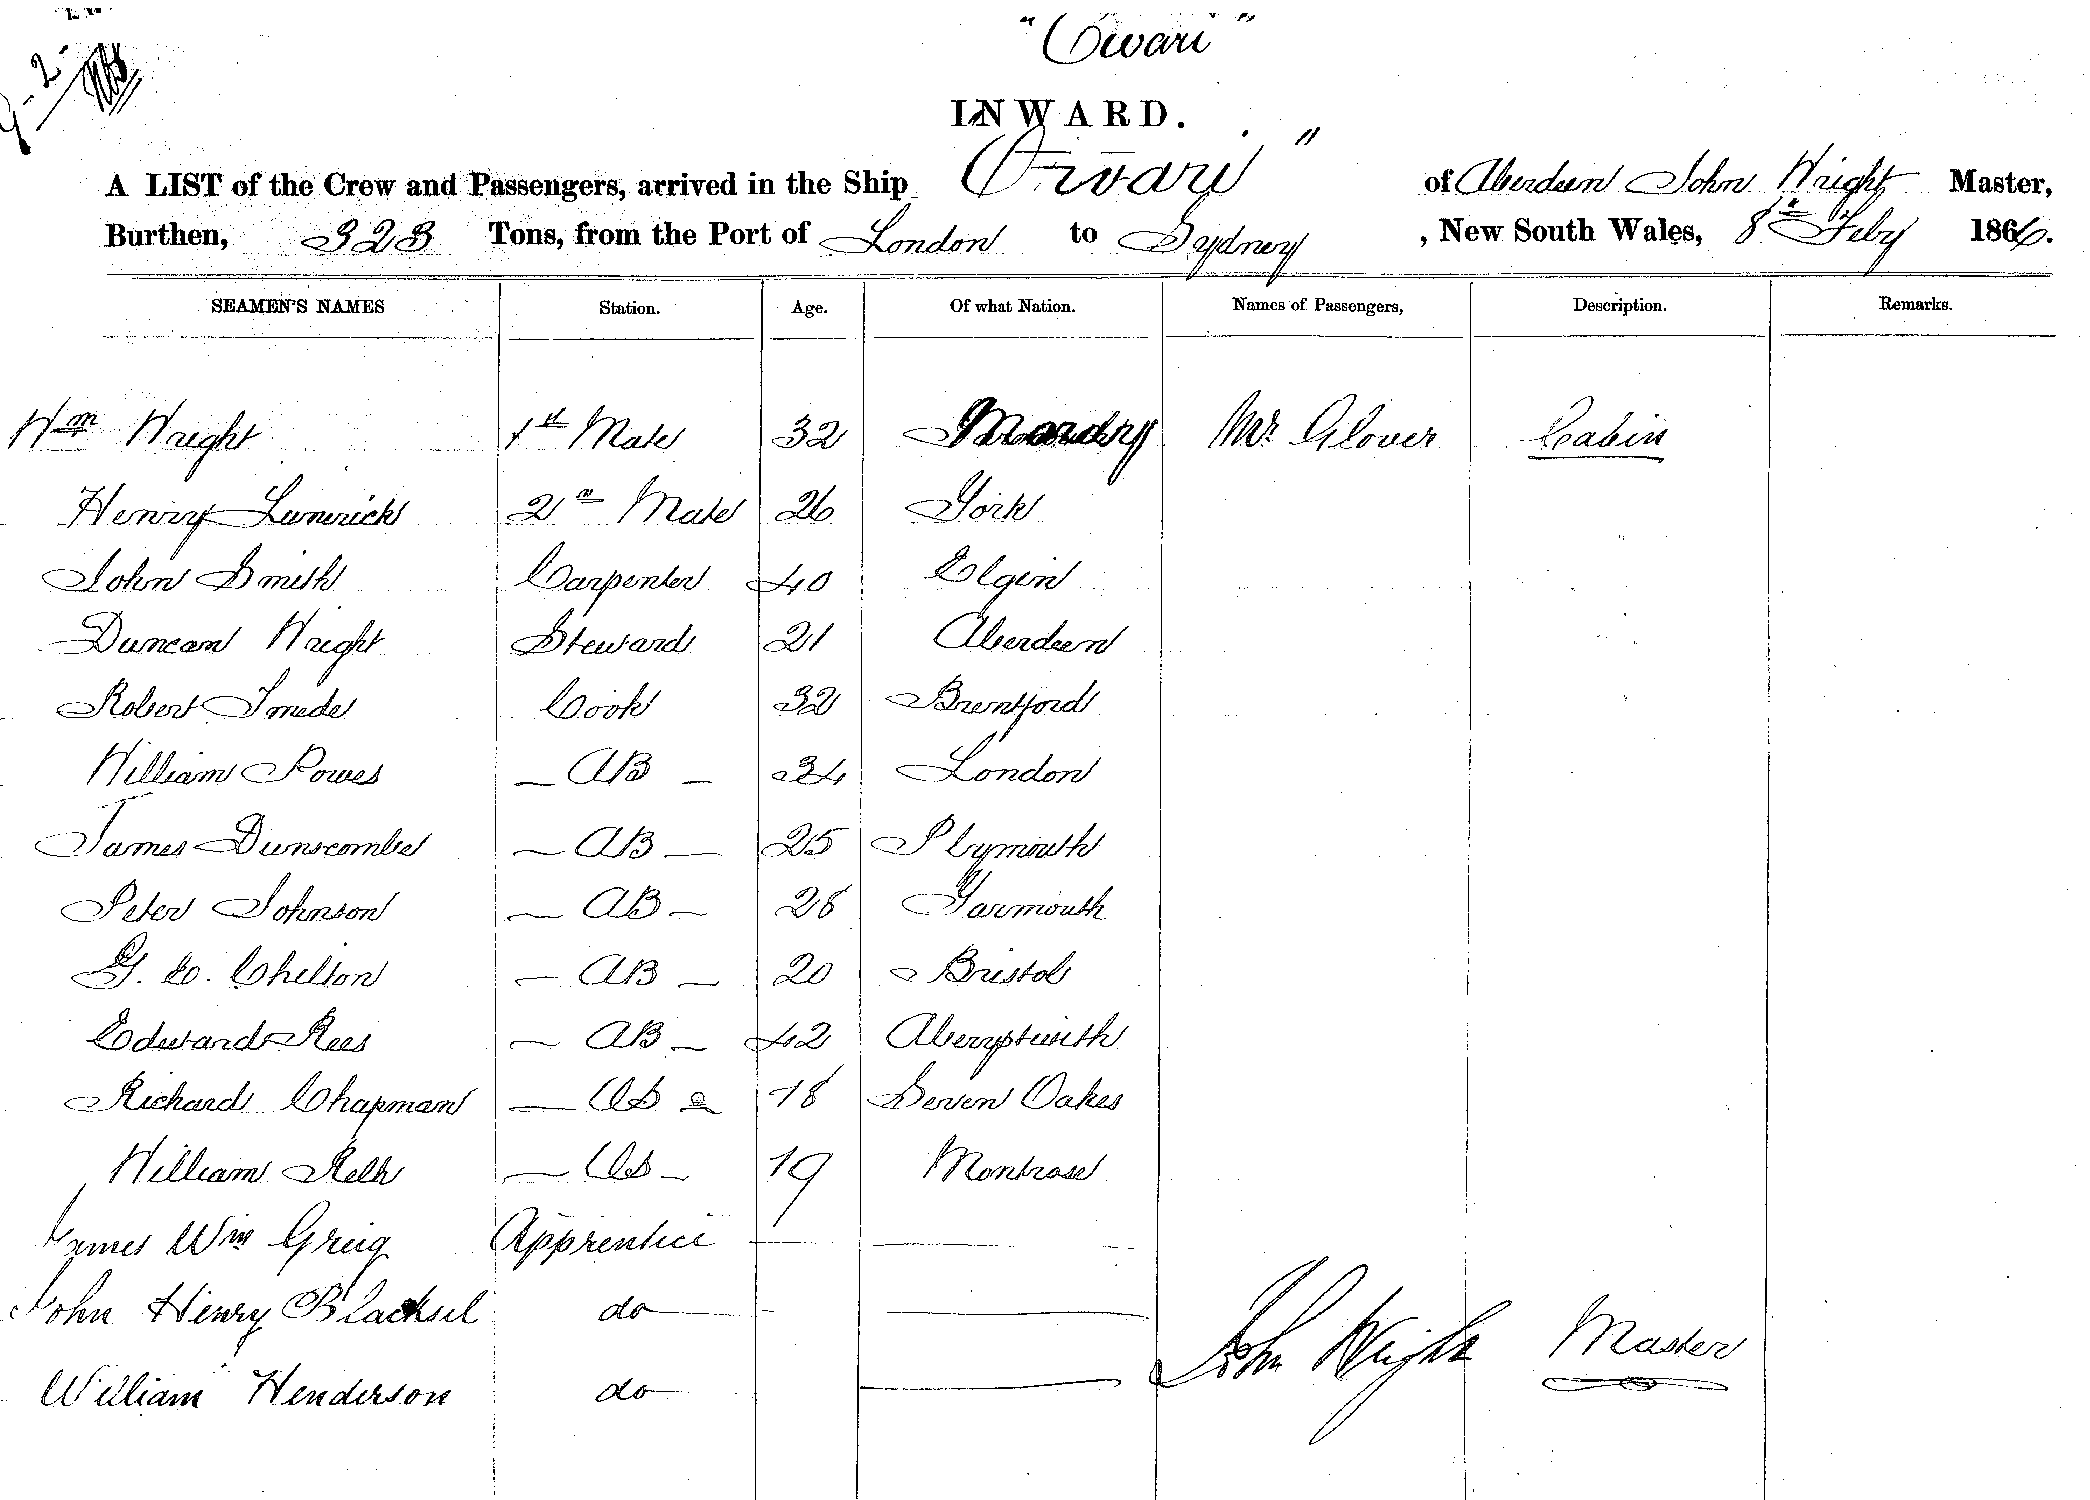 "Owari"
INWARD.
A LIST of the Crew and Passengers, arrived in the Ship Owari" of Aberdeen John Wright Master,
Burthen, 323 Tons, from the Port of London to Sydney, New South Wales, 8th Feby 1866.
SEAMEN'S NAMES Station. Age. Of what Nation. Names of Passengers, Description. Remarks.
Wm Wright 1st Mate 32 Mr Glover Cabin
Henry Limerick 2nd Mate 26 York
John Smith Carpenter 40 Elgin
Duncan Wright Steward 21 Aberdeen
Robert Cook 32 Brentford
William — AB — 34 London
James Dunscombe — AB — 25 Plymouth
Peter Johnson — AB — 28 Yarmouth
G. W. Chelton — AB — 20 Bristol
Edward Rees — AB — 42 Aberyptwith
Richard Chapman — OS — 18 Seven Oakes
William — OS — 19 Montrose
James Wm Greig Apprentice
John Henry Blacksel do
John Wright Master
William Henderson do